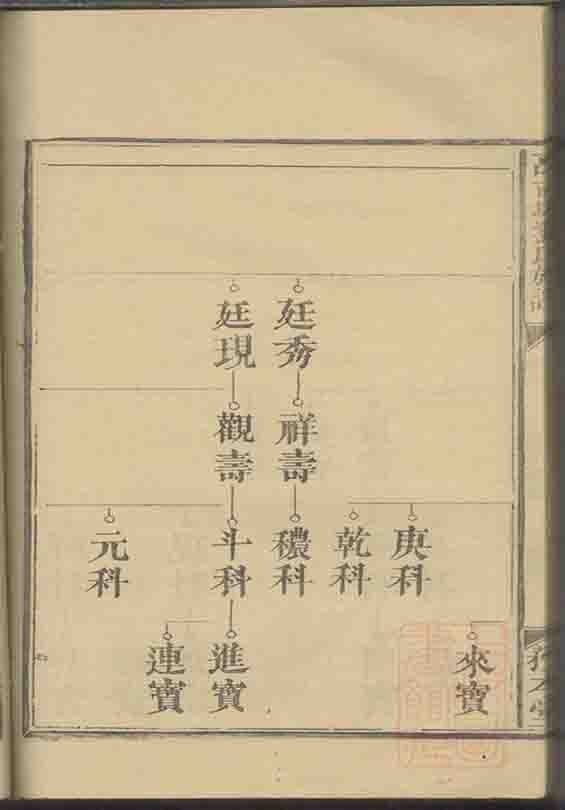 廷秀
廷現
祥壽
觀壽
庚科
乾科
穠科
斗科
元科
來寶
進寶
連寶